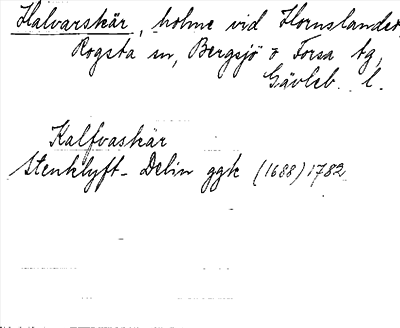 Halvarskär, holme vid Hornslandet,
Rogsta sn, Bergsjö o Forsa tg,
Gävleb. l.
Kalfvaskär
Stenklyft- Delin ggk (1688) 1782